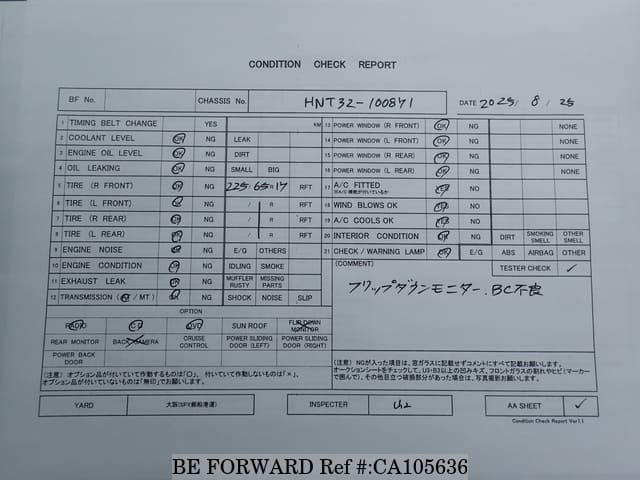 CONDITION CHECK REPORT
BF No. CHASSIS No. HNT32-100871 DATE 2025/ 8 / 25
1 TIMING BELT CHANGE YES KM
2 COOLANT LEVEL OK NG LEAK
3 ENGINE OIL LEVEL OK NG DIRT
4 OIL LEAKING OK NG SMALL BIG
5 TIRE (R FRONT) OK NG 225/65R17 RFT
6 TIRE (L FRONT) OK NG / R RFT
7 TIRE (R REAR) OK NG / R RFT
8 TIRE (L REAR) OK NG / R RFT
9 ENGINE NOISE OK NG E/G OTHERS
10 ENGINE CONDITION OK NG IDLING SMOKE
11 EXHAUST LEAK OK NG MUFFLER RUSTY MISSING PARTS
12 TRANSMISSION (AT / MT) OK NG SHOCK NOISE SLIP
13 POWER WINDOW (R FRONT) OK NG NONE
14 POWER WINDOW (L FRONT) OK NG NONE
15 POWER WINDOW (R REAR) OK NG NONE
16 POWER WINDOW (L REAR) OK NG NONE
17 A/C FITTED YES NO
※A/C機能が付いているか
18 WIND BLOWS OK YES NO
19 A/C COOLS OK YES NO
20 INTERIOR CONDITION OK NG DIRT SMOKING SMELL OTHER SMELL
21 CHECK / WARNING LAMP OK E/G ABS AIRBAG OTHER
(COMMENT) TESTER CHECK ✓
フリップダウンモニター.BC不良
OPTION
RADIO CD DVD SUN ROOF FLIP DOWN MONITOR
REAR MONITOR BACK CAMERA CRUISE CONTROL POWER SLIDING DOOR (LEFT) POWER SLIDING DOOR (RIGHT)
POWER BACK DOOR
(注意) オプション品が付いていて作動するものは「○」、付いていて作動しないものは「×」、
オプション品が付いていないものは「無印」でお願いします。
(注意) NGが入った項目は、窓ガラスに記載せずコメントにすべて記載お願いします。
オークションシートをチェックして、U3・B3以上の凹みキズ、フロントガラスの割れやヒビ(マーカー
で囲んで)、その他目立つ破損部分があった場合は、写真撮影お願いします。
YARD 大阪(SPX郵船港運) INSPECTER AA SHEET ✓
Condition Check Report Ver7.1
BE FORWARD Ref #:CA105636